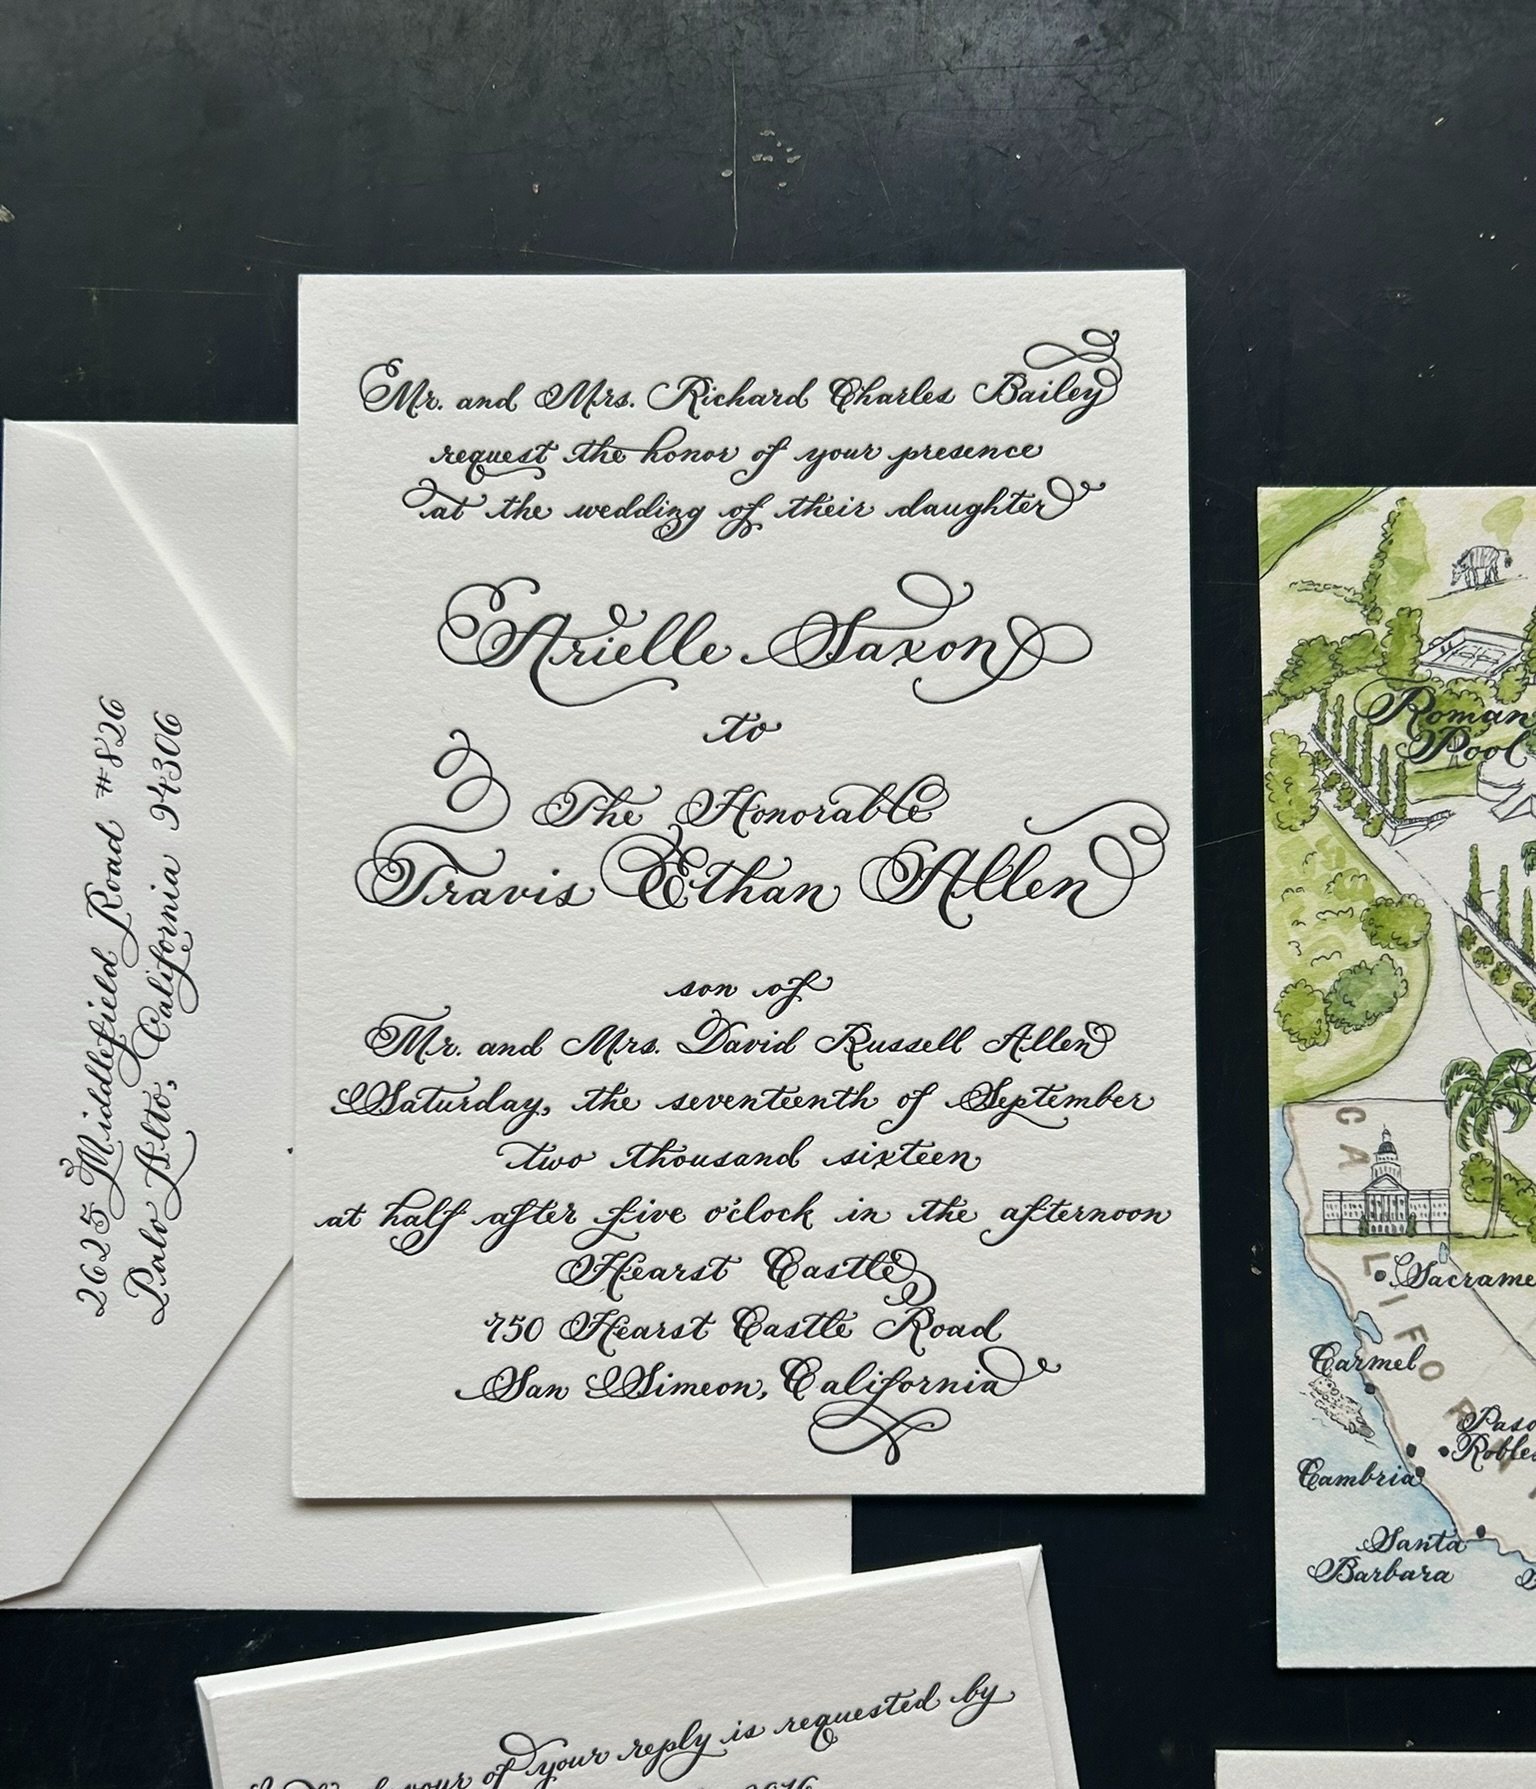 Mr. and Mrs. Richard Charles Bailey
request the honor of your presence
at the wedding of their daughter
Arielle Saxon
to
The Honorable
Travis Ethan Allen
son of
Mr. and Mrs. David Russell Allen
Saturday, the seventeenth of September
two thousand sixteen
at half after five o'clock in the afternoon
Hearst Castle
750 Hearst Castle Road
San Simeon, California
2625 Middlefield Road #826
Palo Alto, California 94306
Roman
Pool
CALIFOR
Carmel
Cambria
Santa
Barbara
of your reply is requested by